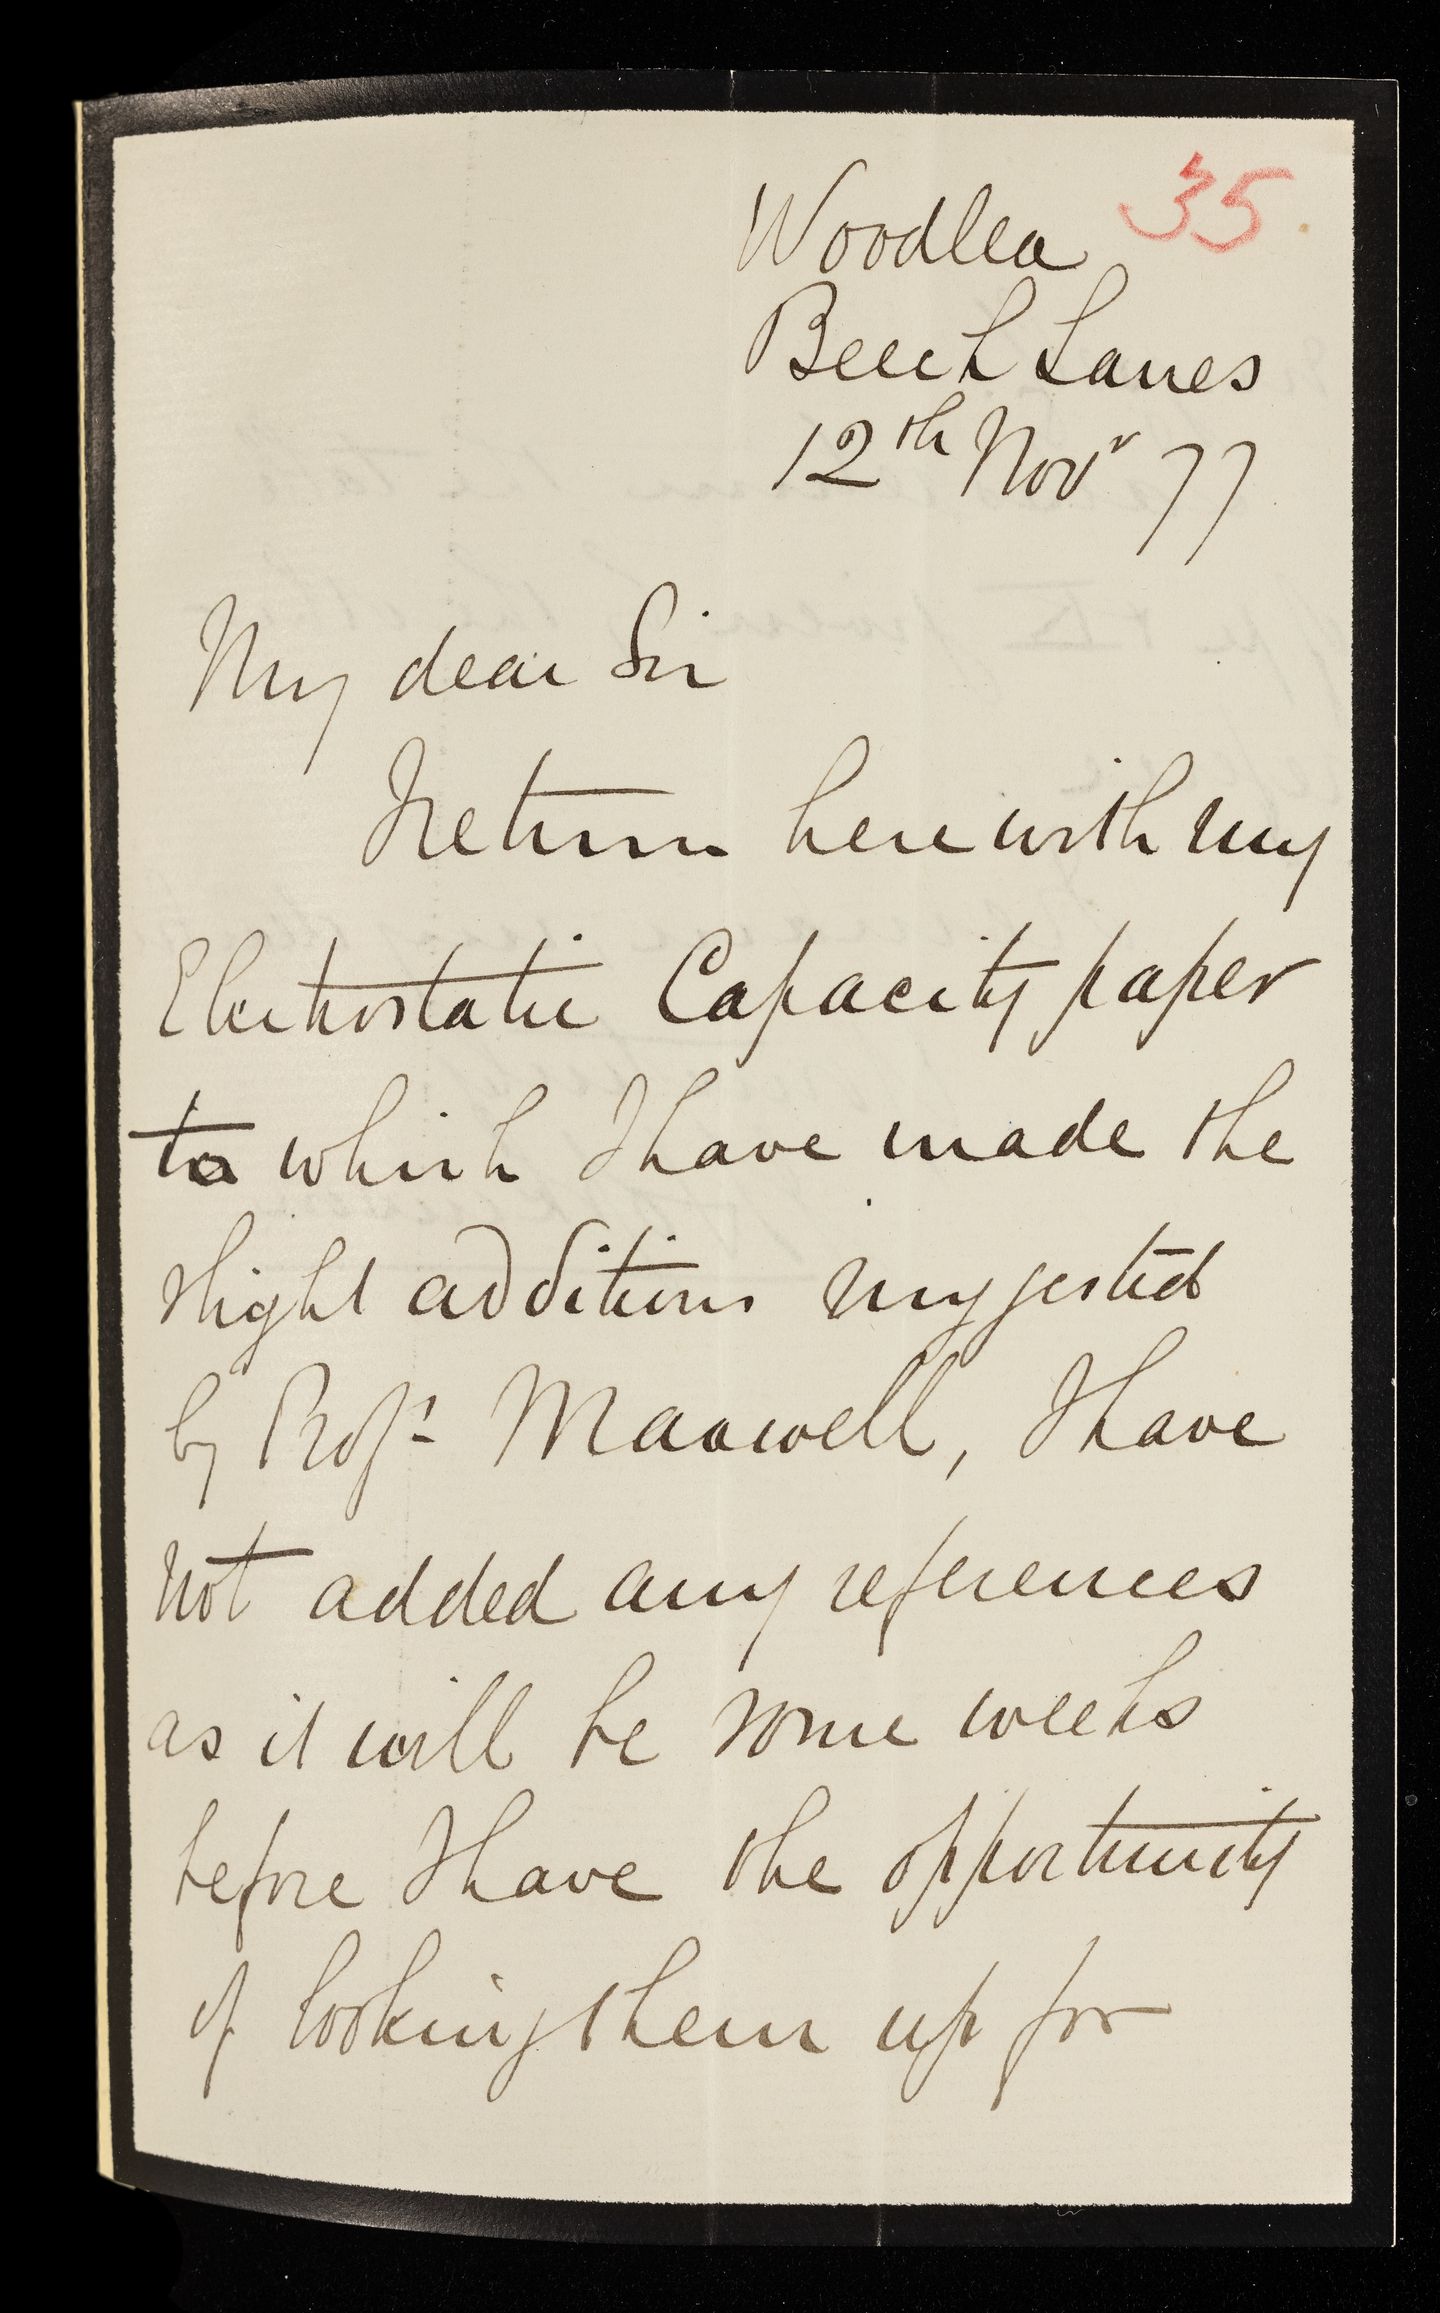 35
Woodlea
Beech Lanes
12th Novr 77
My dear Sir
I return herewith my
Electrostatic Capacity paper
to which I have made the
slight additions suggested
by Profr Maxwell, I have
not added any references
as it will be some weeks
before I have the opportunity
of looking them up for